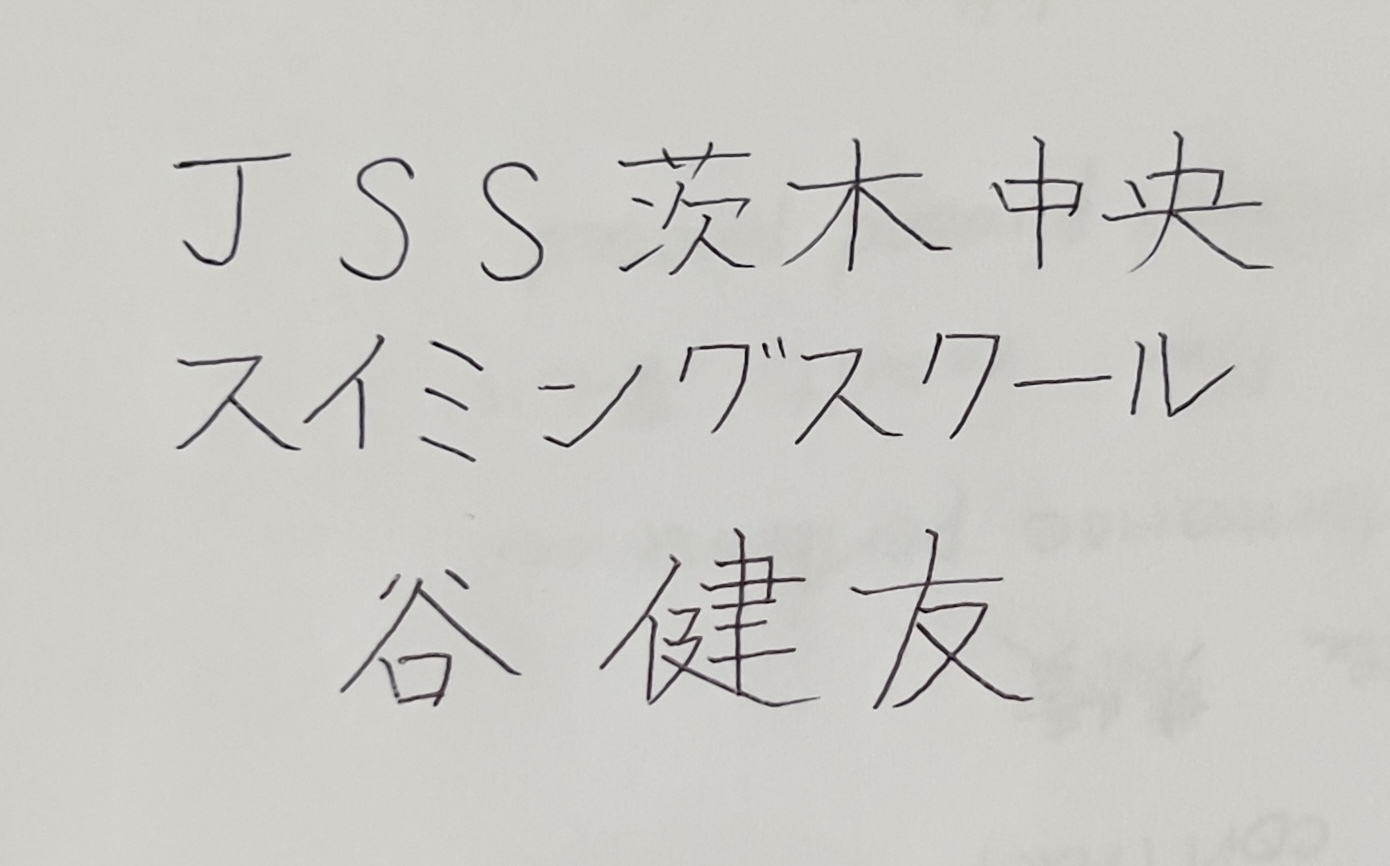 JSS茨木中央
スイミングスクール
谷 健友